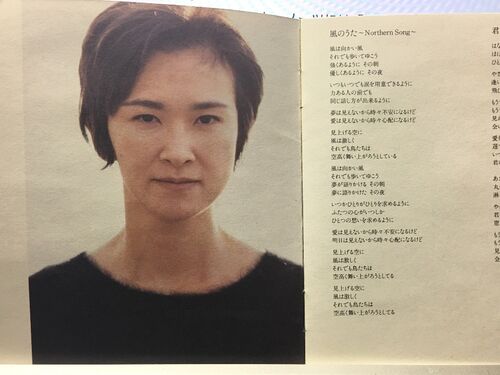 風のうた〜Northern Song〜
風は向かい風
それでも歩いてゆこう
強くあるように その朝
優しくあるように その夜
いつもいつでも涙を用意できるように
力ある人の前でも
同じ話し方が出来るように
夢は見えないから時々不安になるけど
愛は見えないから時々心配になるけど
見上げる空に
風は激しく
それでも鳥たちは
空高く舞い上がろうとしている
風は向かい風
それでも歩いてゆこう
夢が語りかける その朝
夢に語りかけた その夜
いつかひとりがひとりを求めるように
ふたつの心がいつしか
ひとつの思いを求めるように
愛は見えないから時々不安になるけど
明日は見えないから時々心配になるけど
見上げる空に
風は激しく
それでも鳥たちは
空高く舞い上がろうとしてる
見上げる空に
風は激しく
それでも鳥たちは
空高く舞い上がろうとしてる
君